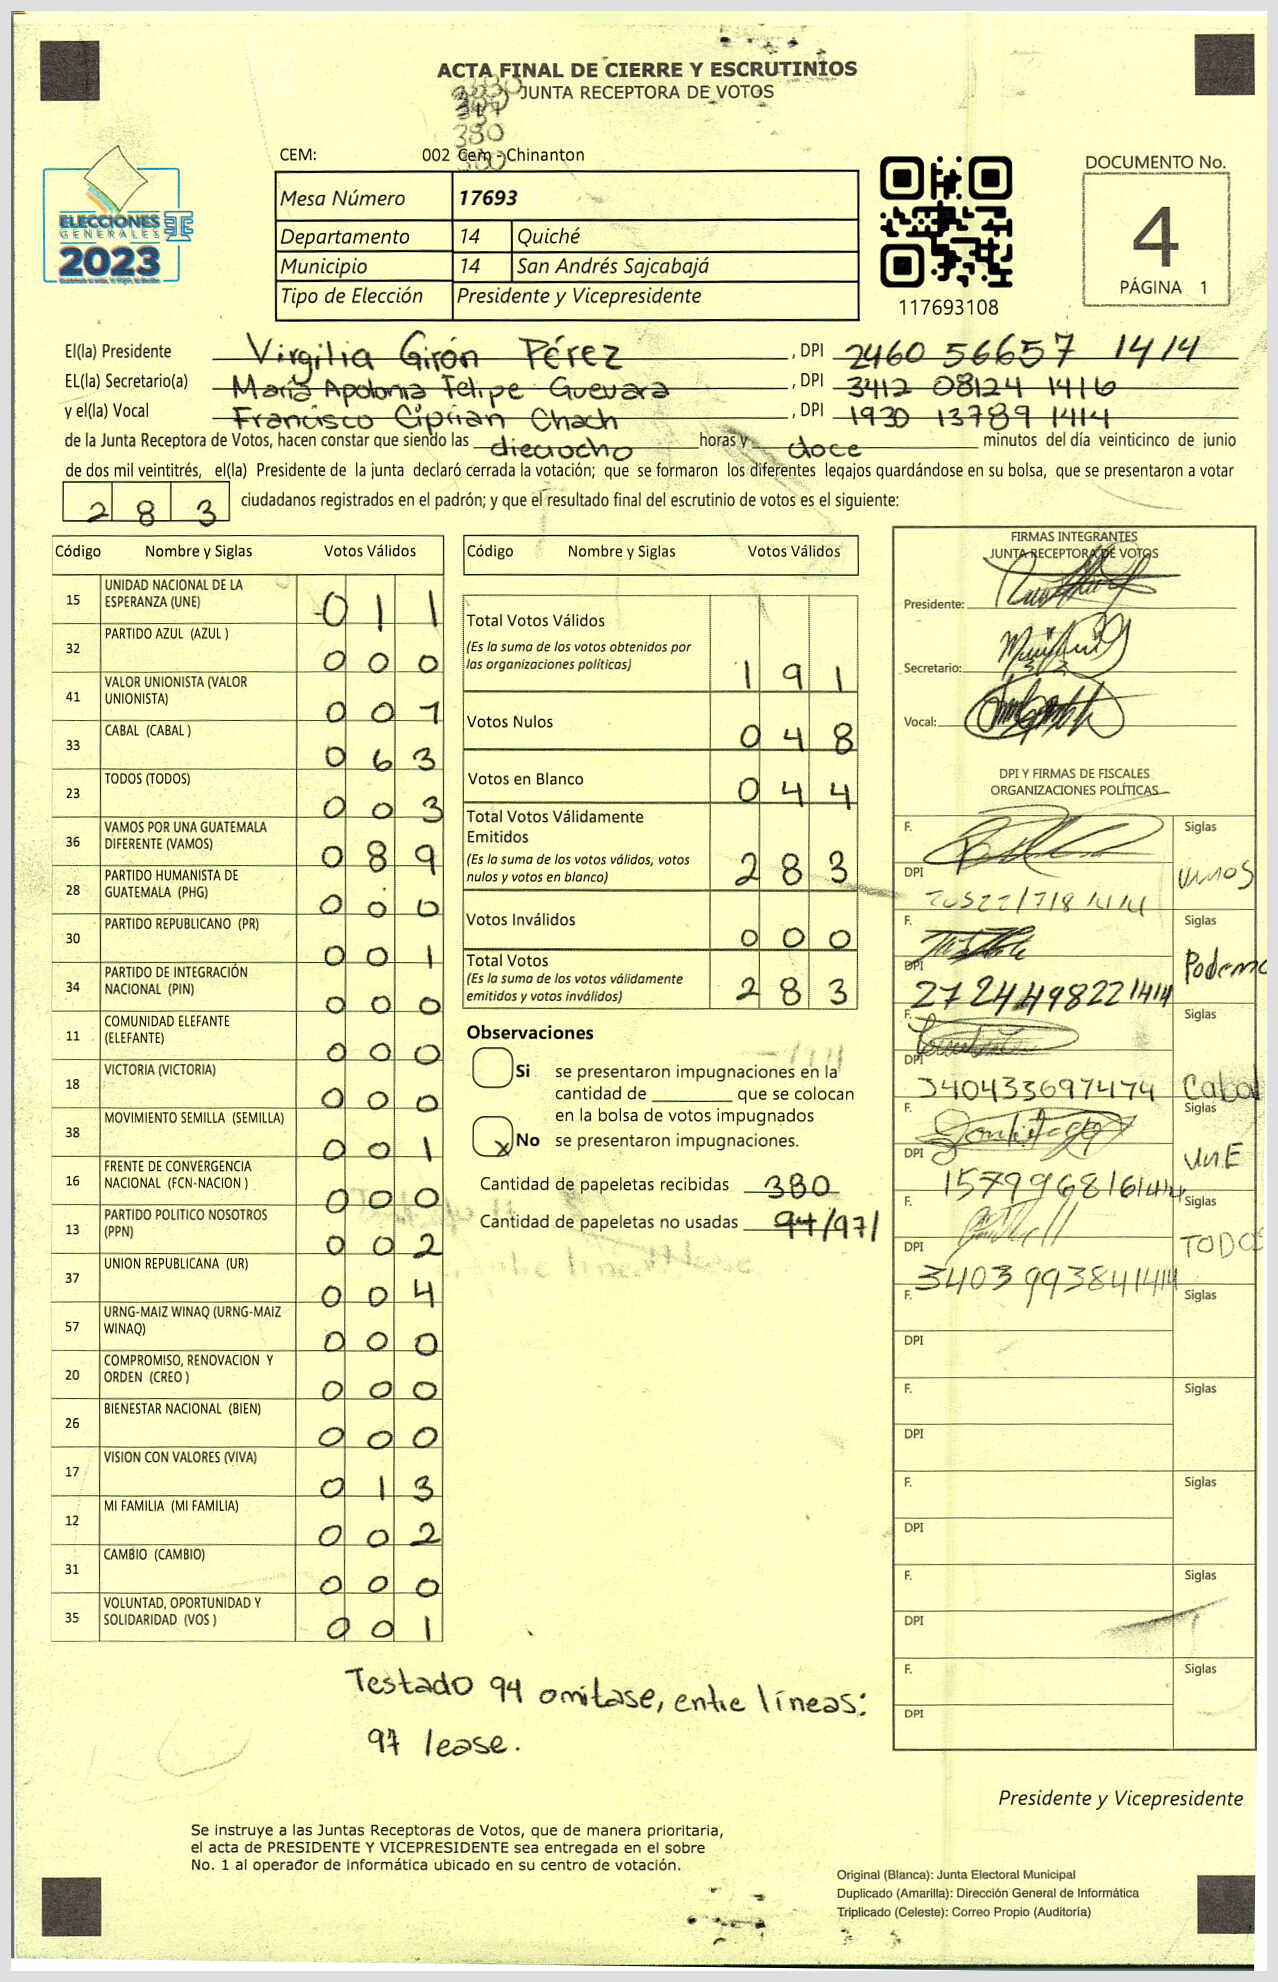 ACTA FINAL DE CIERRE Y ESCRUTINIOS
JUNTA RECEPTORA DE VOTOS
380
CEM: 002 Cem - Chinanton
ELECCIONES
GENERALES
2023
Mesa Número 17693
Departamento 14 Quiché
Municipio 14 San Andrés Sajcabajá
Tipo de Elección Presidente y Vicepresidente
117693108
DOCUMENTO No.
4
PÁGINA 1
El(la) Presidente Virgilia Girón Pérez , DPI 2460 56657 1414
EL(la) Secretario(a) María Apolonia Felipe Guevara , DPI 3412 08124 1416
y el(la) Vocal Francisco Ciprian Chach , DPI 1930 13789 1414
de la Junta Receptora de Votos, hacen constar que siendo las dieciocho horas y doce minutos del día veinticinco de junio
de dos mil veintitrés, el(la) Presidente de la junta declaró cerrada la votación; que se formaron los diferentes legajos guardándose en su bolsa, que se presentaron a votar
283 ciudadanos registrados en el padrón; y que el resultado final del escrutinio de votos es el siguiente:
Código Nombre y Siglas Votos Válidos
15 UNIDAD NACIONAL DE LA ESPERANZA (UNE) 011
32 PARTIDO AZUL (AZUL ) 000
41 VALOR UNIONISTA (VALOR UNIONISTA) 001
33 CABAL (CABAL ) 063
23 TODOS (TODOS) 003
36 VAMOS POR UNA GUATEMALA DIFERENTE (VAMOS) 089
28 PARTIDO HUMANISTA DE GUATEMALA (PHG) 000
30 PARTIDO REPUBLICANO (PR) 001
34 PARTIDO DE INTEGRACIÓN NACIONAL (PIN) 000
11 COMUNIDAD ELEFANTE (ELEFANTE) 000
18 VICTORIA (VICTORIA) 000
38 MOVIMIENTO SEMILLA (SEMILLA) 001
16 FRENTE DE CONVERGENCIA NACIONAL (FCN-NACION ) 000
13 PARTIDO POLITICO NOSOTROS (PPN) 002
37 UNION REPUBLICANA (UR) 004
57 URNG-MAIZ WINAQ (URNG-MAIZ WINAQ) 000
20 COMPROMISO, RENOVACION Y ORDEN (CREO ) 000
26 BIENESTAR NACIONAL (BIEN) 000
17 VISION CON VALORES (VIVA) 013
12 MI FAMILIA (MI FAMILIA) 002
31 CAMBIO (CAMBIO) 000
35 VOLUNTAD, OPORTUNIDAD Y SOLIDARIDAD (VOS ) 001
Código Nombre y Siglas Votos Válidos
Total Votos Válidos
(Es la suma de los votos obtenidos por
las organizaciones políticas) 191
Votos Nulos 048
Votos en Blanco 044
Total Votos Válidamente
Emitidos
(Es la suma de los votos válidos, votos
nulos y votos en blanco) 283
Votos Inválidos 000
Total Votos
(Es la suma de los votos válidamente
emitidos y votos inválidos) 283
Observaciones
Si se presentaron impugnaciones en la
cantidad de ________ que se colocan
en la bolsa de votos impugnados
x No se presentaron impugnaciones.
Cantidad de papeletas recibidas 380
Cantidad de papeletas no usadas 94/97/
FIRMAS INTEGRANTES
JUNTA RECEPTORA DE VOTOS
Presidente:
Secretario:
Vocal:
DPI Y FIRMAS DE FISCALES
ORGANIZACIONES POLÍTICAS
F. Siglas
DPI VAMOS
F. Siglas
DPI Podemo
2724498221414
F. Siglas
DPI
340433697474 Cabal
F. Siglas
DPI UNE
1579968161414
F. Siglas
DPI TODOS
3403993841414
F. Siglas
DPI
F. Siglas
DPI
F. Siglas
DPI
F. Siglas
DPI
F. Siglas
DPI
Testado 94 omitase, entre líneas:
97 lease.
Presidente y Vicepresidente
Se instruye a las Juntas Receptoras de Votos, que de manera prioritaria,
el acta de PRESIDENTE Y VICEPRESIDENTE sea entregada en el sobre
No. 1 al operador de informática ubicado en su centro de votación.
Original (Blanca): Junta Electoral Municipal
Duplicado (Amarilla): Dirección General de Informática
Triplicado (Celeste): Correo Propio (Auditoría)